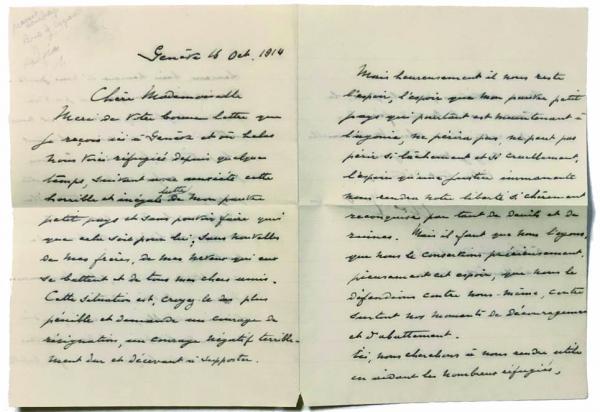 Genève 16 Oct. 1914
Chère Mademoiselle
Merci de votre bonne lettre que
je reçois ici à Genève et où hélas
nous voici réfugiés depuis quelque
temps, suivant avec anxiété cette
horrible et inégale lutte de mon pauvre
petit pays et sans pouvoir faire quoi
que cela soit pour lui, sans nouvelles
de mes frères, de mes neveux qui eux
se battent et de tous mes chers amis.
Cette situation est, croyez-le des plus
pénible et demande un courage de
résignation, un courage négatif terrible-
ment dur et décevant à supporter.
Mais heureusement il nous reste
l'espoir, l'espoir que mon pauvre petit
pays qui pourtant est maintenant à
l'agonie, ne périra pas, ne peut pas
périr si lâchement et si cruellement,
l'espoir qu'une justice immanente
nous rendra notre liberté si chèrement
reconquise par tant de deuils et de
ruines. Mais il faut que nous l'ayons,
que nous le conservions précieusement,
pieusement cet espoir, que nous le
défendions contre nous-même, contre
surtout nos moments de découragement
et d'abattement.
Ici, nous cherchons à nous rendre utiles
en aidant les nombreux réfugiés,